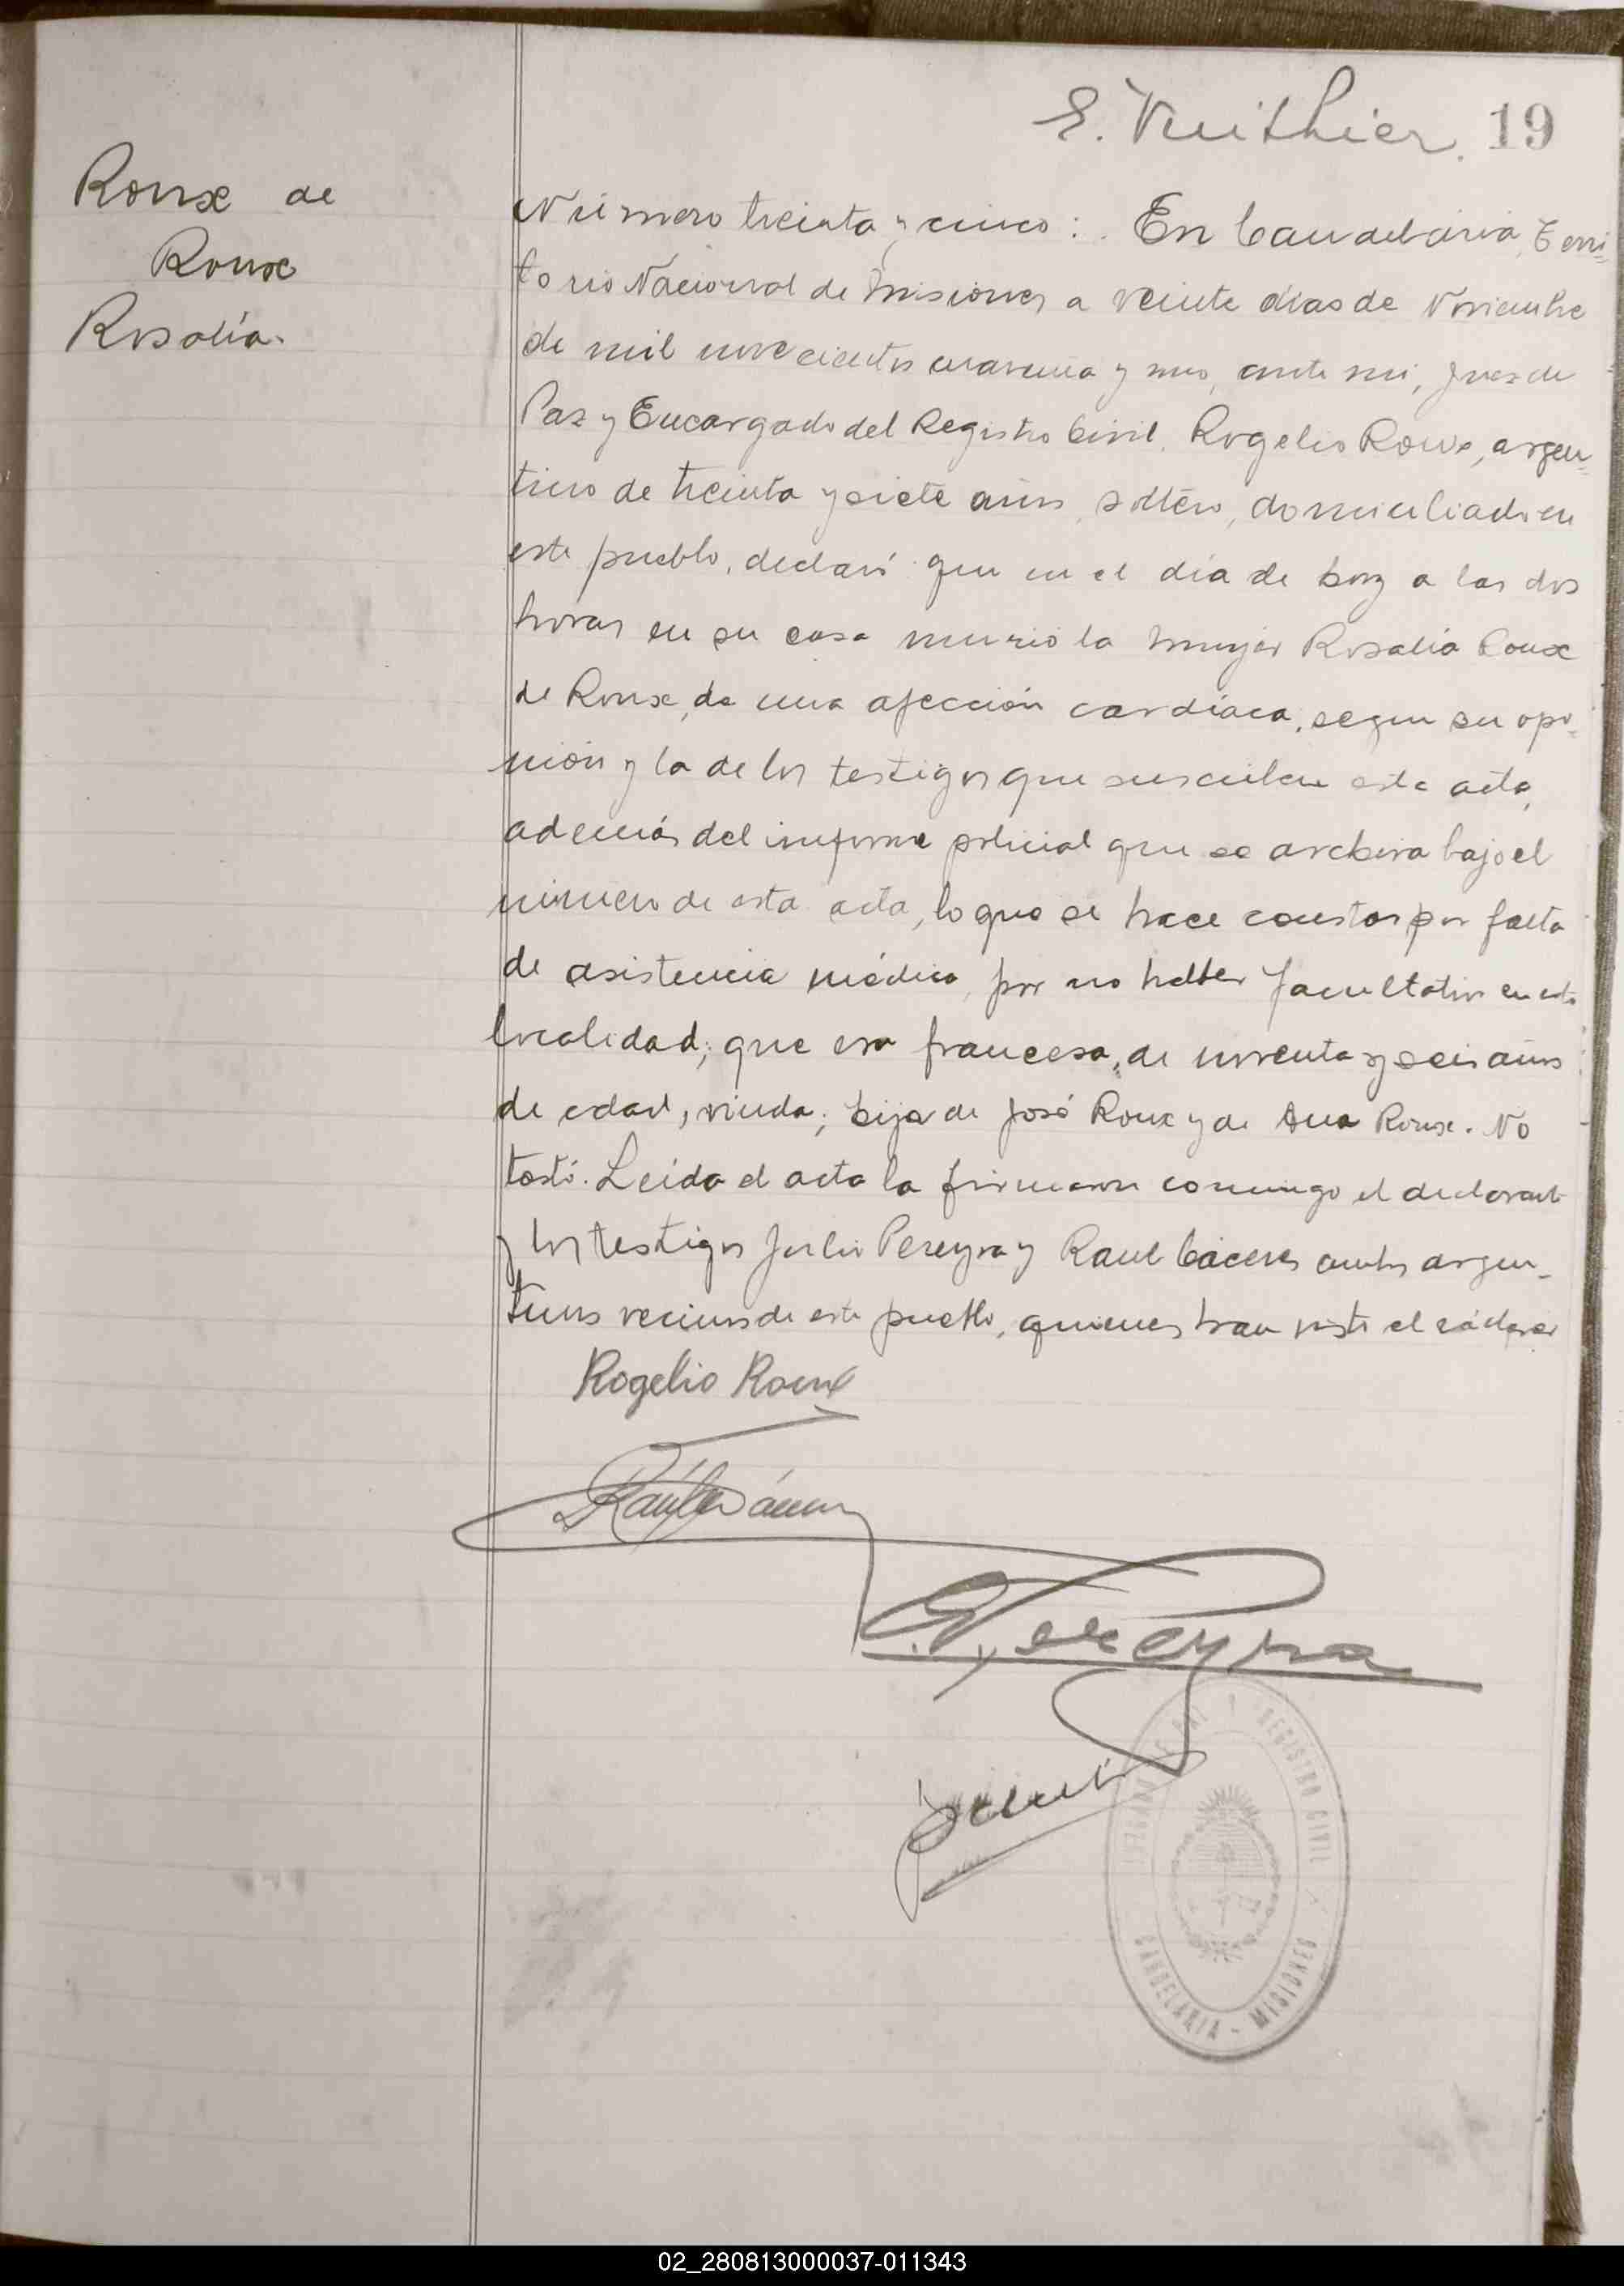 E. Vuithier. 19
Roux de
Roux
Rosalía.
Número treinta y cinco: En Candelaria, Terri=
torio Nacional de Misiones a veinte días de Noviembre
de mil novecientos cuarenta y uno, ante mi, Juez de
Paz y Encargado del Registro Civil, Rogelio Roux, argen=
tino de treinta y siete años, soltero, domiciliado en
este pueblo, declaró que en el día de hoy a las dos
horas en su casa murió la mujer Rosalía Roux
de Roux, de una afección cardíaca, segun su opi=
nión y la de los testigos que suscriben este acta,
además del informe policial que se archiva bajo el
número de esta acta, lo que se hace constar por falta
de asistencia médica, por no haber facultativo en esta
localidad; que era francesa, de noventa y seis años
de edad, viuda; hija de José Roux y de Ana Roux. No
testó. Leída el acta la firmaron conmigo el declarante
y los testigos Julio Pereyra y Raul Cáceres ambos argen=
tinos vecinos de este pueblo, quienes han visto el cádaver
Rogelio Roux
Raúl Cáceres
Pereyra
REGISTRO CIVIL
CANDELARIA - MISIONES
02_280813000037-011343